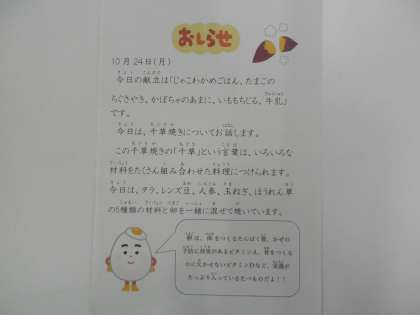 おしらせ
10月24日(月)
今日の献立は「じゃこわかめごはん、たまごの
ちぐさやき、かぼちゃのあまに、いももちじる、牛乳」
です。
今日は、千草焼きについてお話します。
この千草焼きの「千草」という言葉は、いろいろな
材料をたくさん組み合わせた料理につけられます。
今日は、タラ、レンズ豆、人参、玉ねぎ、ほうれん草
の5種類の材料と卵を一緒に混ぜて焼いています。
卵は、体をつくるたんぱく質、かぜの
予防に効果があるビタミンA、骨をつくる
のに欠かせないビタミンDなど、栄養が
たっぷり入っているたべものだよ!!